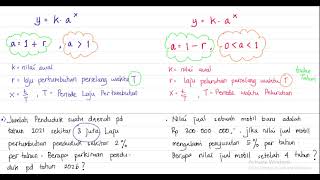 y = k · a^x
a = 1 + r , a > 1
k = nilai awal
r = laju pertumbuhan perselang waktu T
x = t/T , T = Periode Laju Pertumbuhan
a) Jumlah Penduduk suatu daerah pd
tahun 2021 sekitar 3 juta. Laju
pertumbuhan penduduk sekitar 2%
per tahun. Berapa perkiraan pendu-
duk pd tahun 2026?
y = k · a^x
a = 1 - r , 0 < a < 1
k = nilai awal
r = laju peluruhan perselang waktu T
x = t/T , T = Periode Peluruhan
Nilai jual sebuah mobil baru adalah
Rp 300.000.000,-. jika nilai jual mobil
mengalami penyusutan 5% per tahun
Berapa nilai jual mobil setelah 4 tahun?